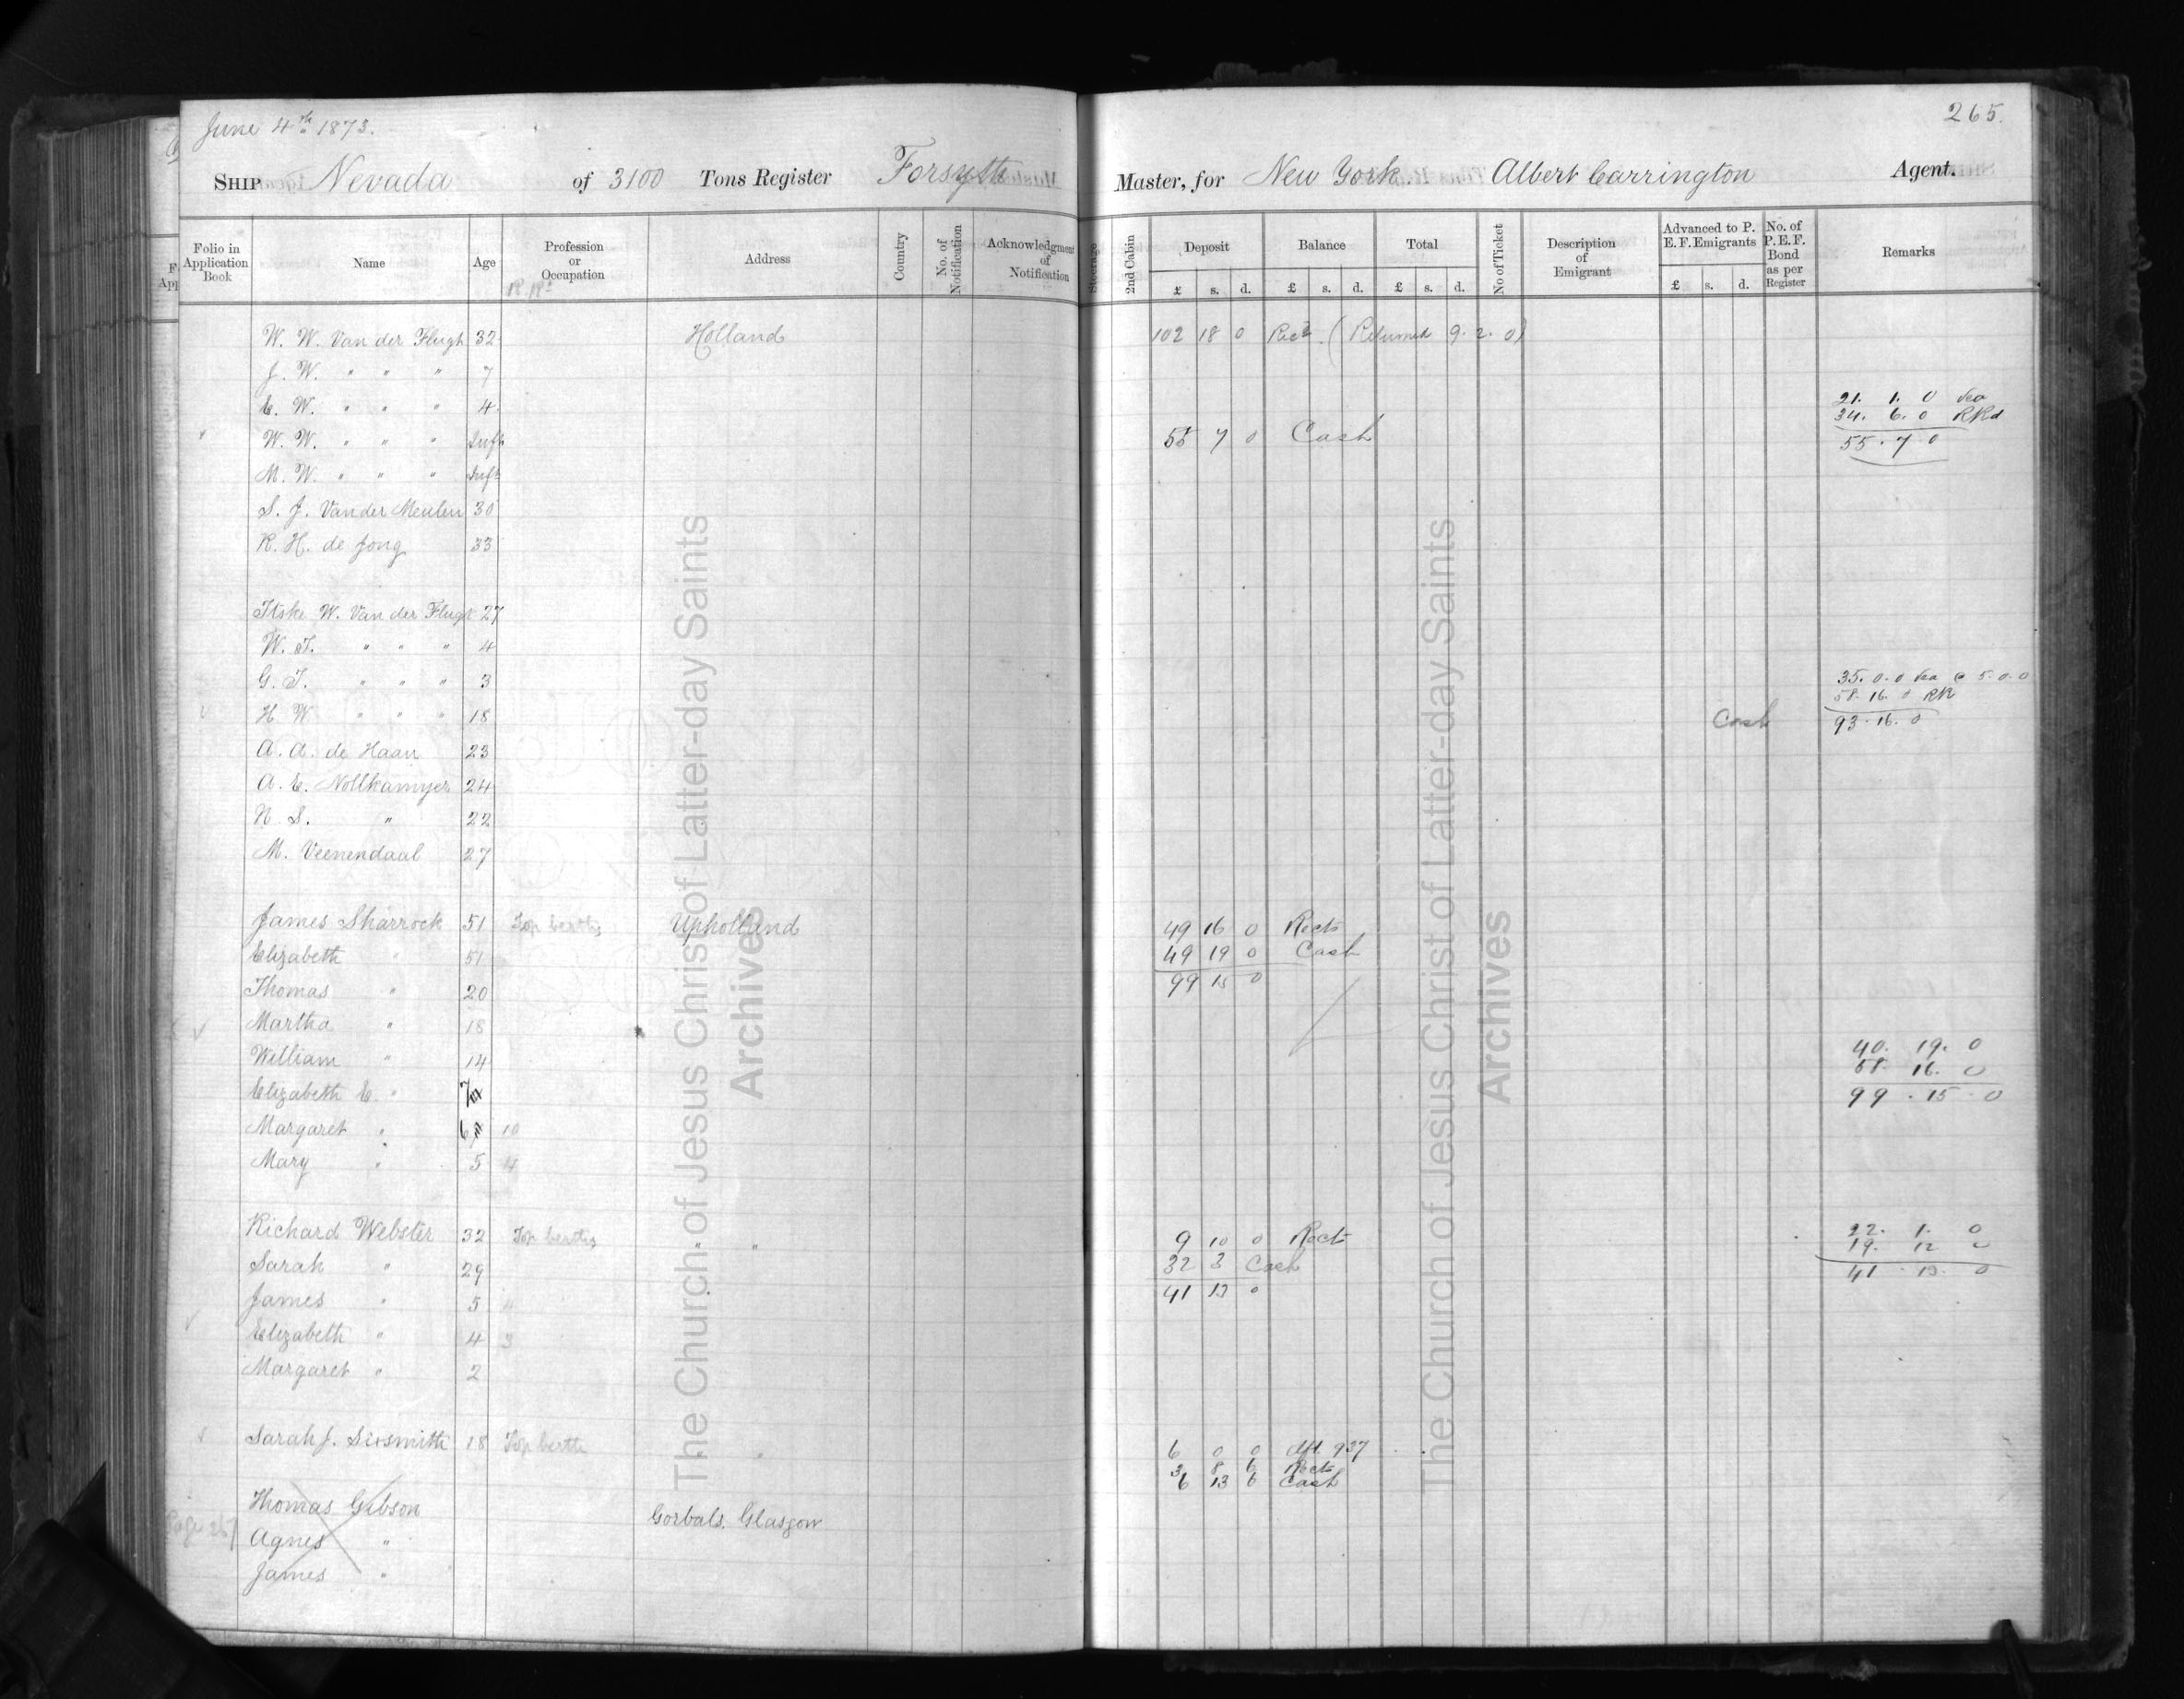 June 4th 1873.
265.
SHIP Nevada of 3100 Tons Register Forsyth Master, for New York. Albert Carrington Agent.
Folio in Application Book Name Age Profession or Occupation Address Country No. of Notification Acknowledgment of Notification Steerage 2nd Cabin Deposit £ s. d. Balance £ s. d. Total £ s. d. No of Ticket Description of Emigrant Advanced to P. E. F. Emigrants £ s. d. No. of P. E. F. Bond as per Register Remarks
W. W. Van der Flugt 32 Holland 102 18 0 Rect. (Returned 9. 2. 0)
J. W. " " " 7
E. W. " " " 4 21. 1. 0 Sea
34. 6. 0 RRd
W. W. " " " Inft 55 7 0 Cash 55. 7 0
M. W. " " " Inft
S. J. Van der Meulen 30
R. H. de Jong 33
Itske W. Van der Flugt 27
W. T. " " " 4
G. T. " " " 3 35. 0. 0 Sea @ 5. 0. 0
58. 16. 0 RR
H. W. " " " 18 Cash 93. 16. 0
A. A. de Haan 23
A. E. Nollkamyer 24
N. S. " 22
M. Veenendaal 27
James Sharrock 51 Top berths Upholland 49 16 0 Rects
Elizabeth " 51 49 19 0 Cash
Thomas " 20 99 15 0
Martha " 18
William " 14 40. 19. 0
58. 16. 0
Elizabeth E. " 7 99. 15. 0
Margaret " 6 10
Mary " 5 4
Richard Webster 32 Top berths " " 9 10 0 Rects 22. 1. 0
19. 12 0
Sarah " 29 32 3 Cash 41. 13. 0
James " 5 41 13 0
Elizabeth " 4 3
Margaret " 2
Sarah J. Sixsmith 18 Top berth " " 6 0 0 dft. 937
3 8 6 Rects
6 13 6 Cash
Thomas Gibson Gorbals. Glasgow
Page 267
Agnes "
James "
The Church of Jesus Christ of Latter-day Saints
Archives
The Church of Jesus Christ of Latter-day Saints
Archives